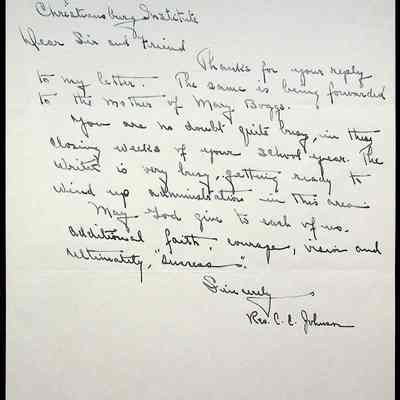 Christiansburg Institute
Dear Sir and Friend
Thanks for your reply
to my letter. The same is being forwarded
to the mother of Mary Boggs.
You are no doubt quite busy, in they
closing weeks of your school year. The
writer is very busy, getting ready to
wind up administration in this area
May God give to each of us.
additional faith, courage, vision and
ultimately, "success".
Sincerely
Rev. C. C. Johnson